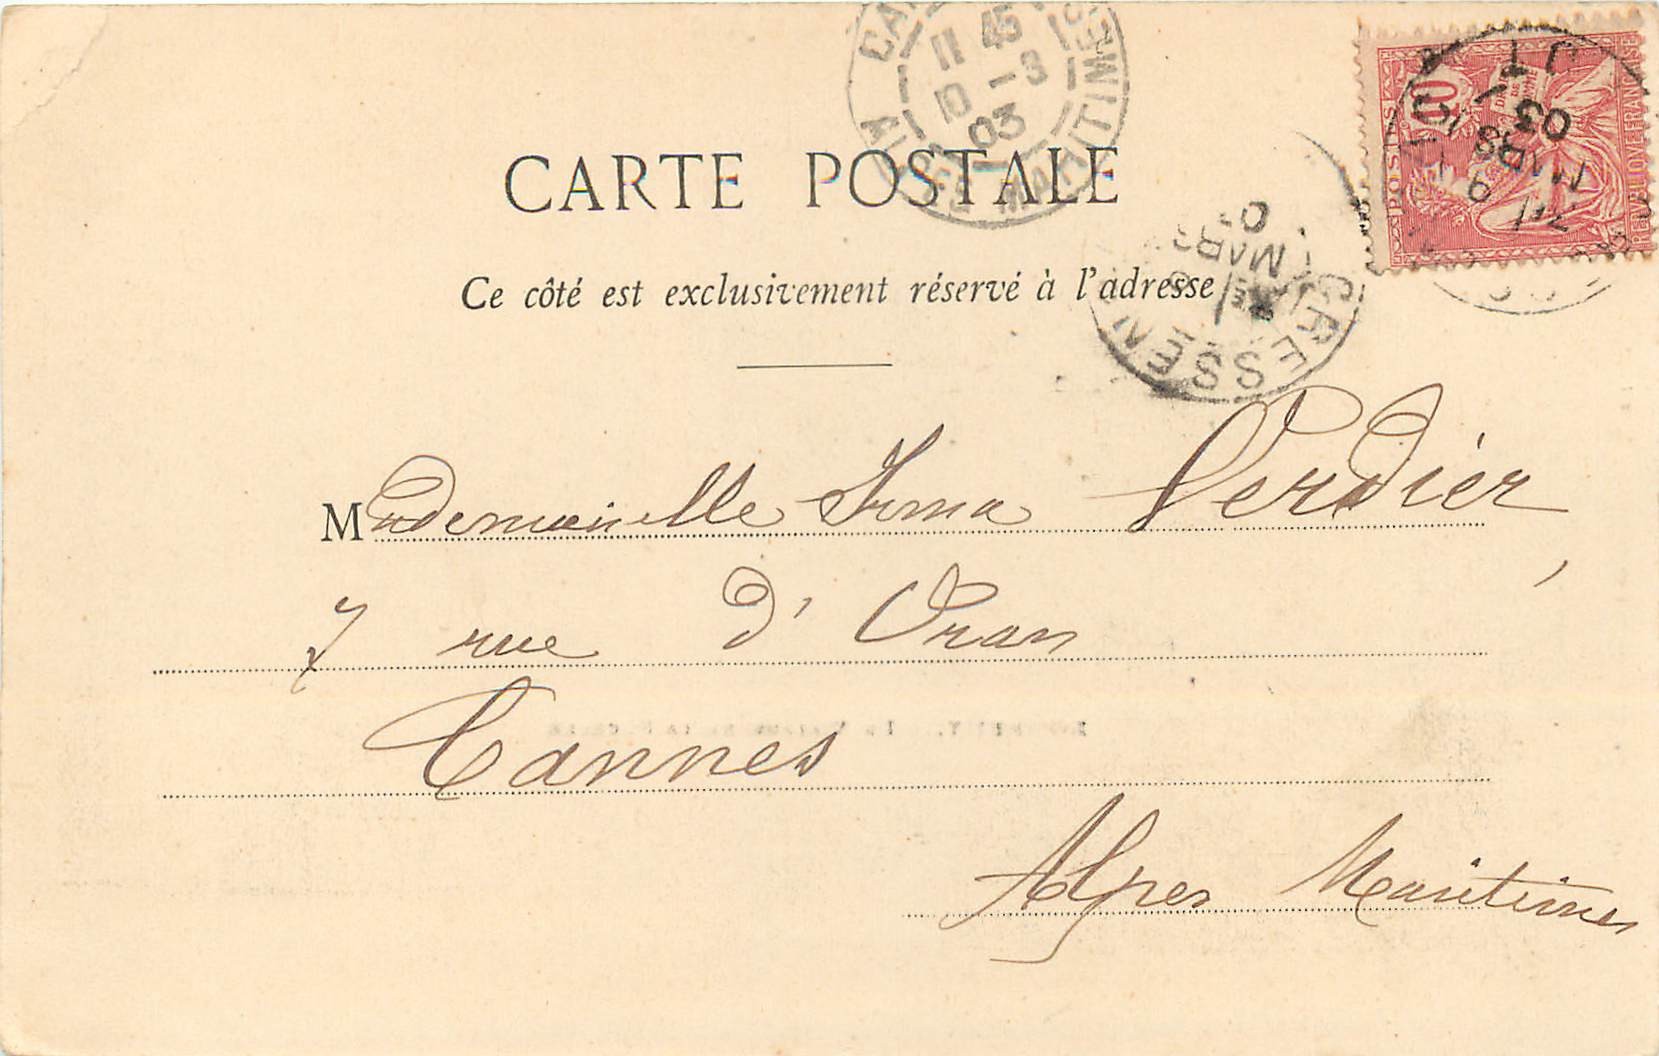 CARTE POSTALE
Ce côté est exclusivement réservé à l'adresse
Mademoiselle Irma Verdier,
7 rue d'Oran
Cannes
Alpes Maritimes
11 45
10 -3
03
MARITIMES
GRESSEN
MARS
POSTES
10
REPUBLIQUE FRANÇAISE
9
MARS
03